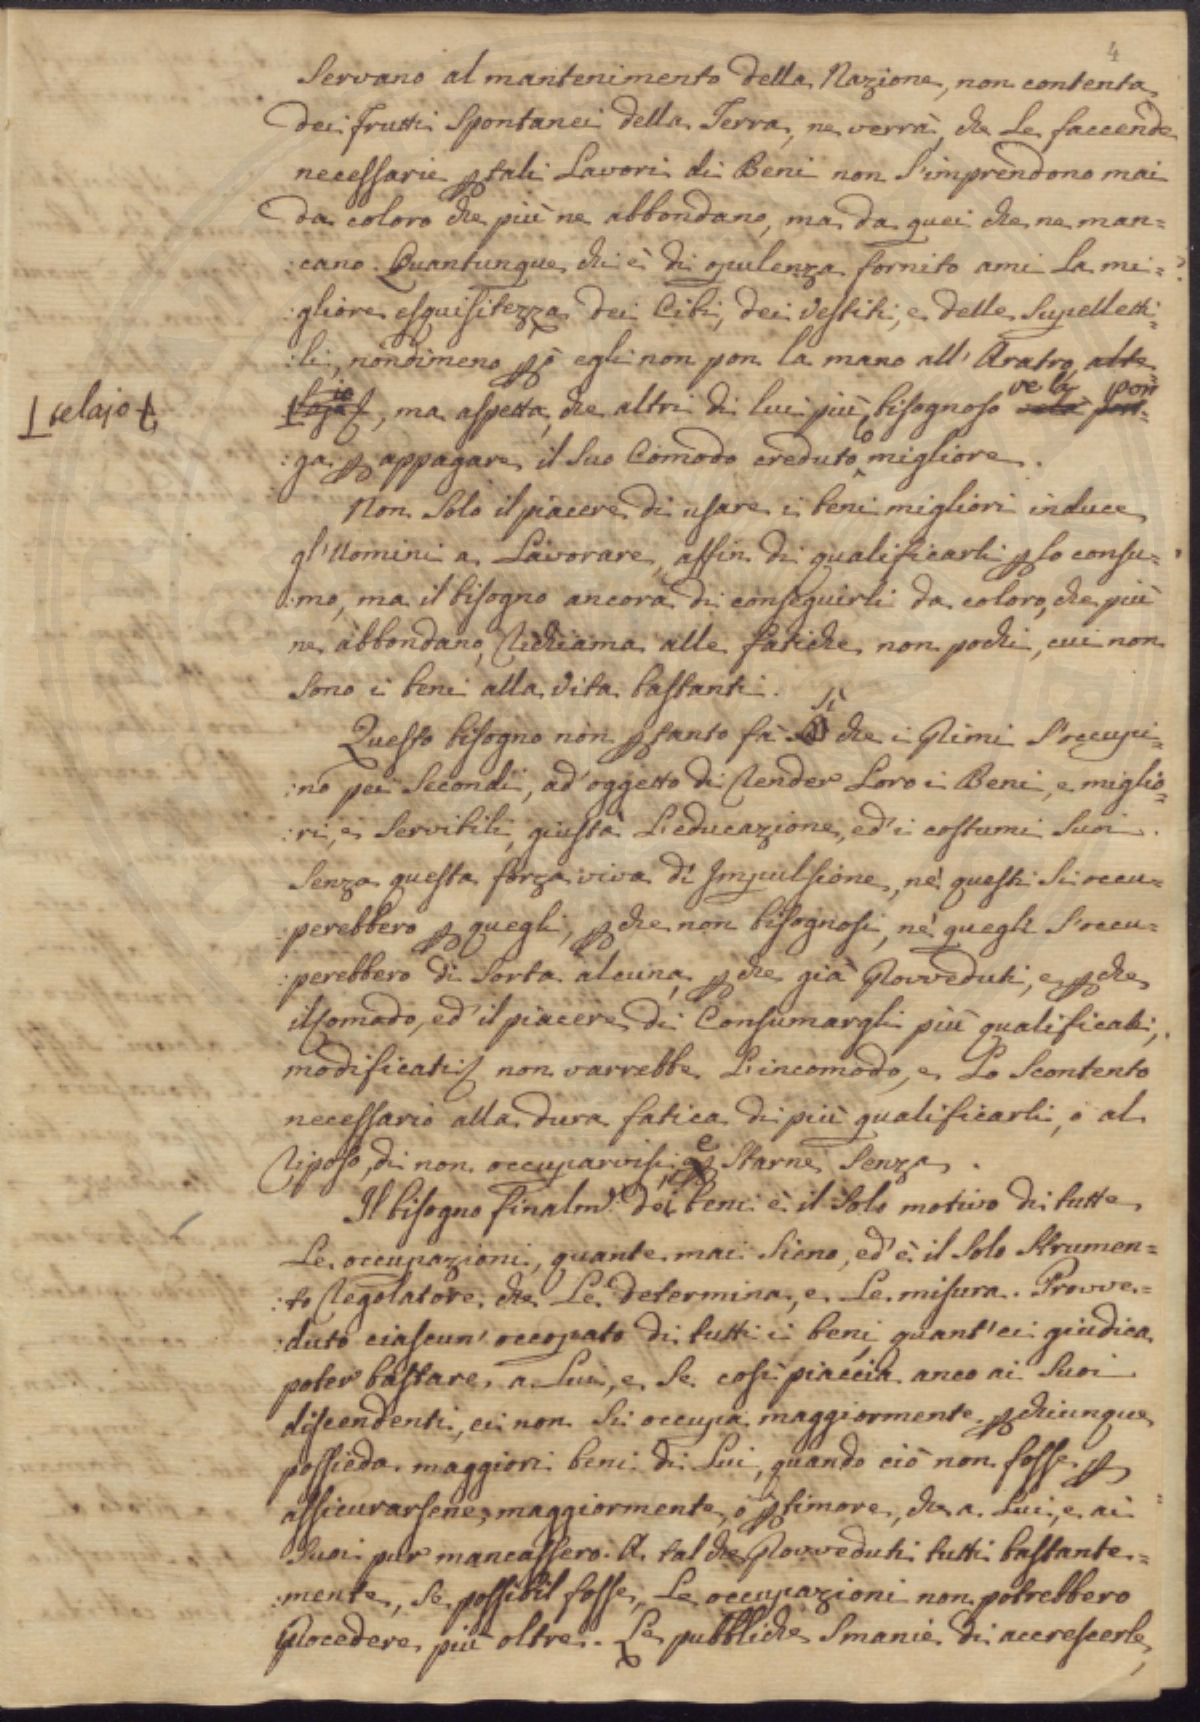 4
Servano al mantenimento della Nazione, non contenta
dei frutti Spontanei della Terra, ne verrà, che Le faccende
necessarie p tali Lavori di Beni non S'imprendono mai
da coloro che più ne abbondano, ma da quei che ne man=
:cano. Quantunque chi è di opulenza fornito ami La mi=
:gliore esquisitezza dei Cibi, dei Vestiti, e delle Supelletti=
:li, nondimeno p ò egli non pon la mano all' Aratro,
telajo
, ma aspetta, che altri di lui più bisognoso ve la pon
:ga p appagare il Suo Comodo creduto migliore.
Non Solo il piacere di usare i beni migliori induce
gl'Uomini a Lavorare, affin di qualificarli p lo consu=
:mo, ma il bisogno ancora di conseguirli da coloro, che più
ne abbondano, richiama alle fatiche non pochi, cui non
Sono i beni alla Vita bastanti.
Questo bisogno non p tanto fà Sì che i Primi S'occupi=
:no pei Secondi, ad'oggetto di render Loro i Beni, e miglio=
:ri, e Servibili, giusta L'educazione, ed'i costumi Suoi.
Senza questa forza viva di Impulsione, nè questi Si occu=
:perebbero p quegli, p che non bisognosi, nè quegli S'occu=
:perebbero di Sorta alcuna, p che già Provveduti, e p che
il Comodo, ed'il piacere di Consumargli più qualificati,
modificati non varrebbe L'incomodo, e Lo Scontento
necessario alla dura fatica di più qualificarli, o al
riposo, di non occuparvisi, e Starne Senza.
Il bisogno finalmᵉ. dei beni è il Solo motivo di tutte
Le occupazioni, quante mai Sieno, ed'è il Solo Strumen=
:to regolatore, che Le determina, e Le misura. Provve=
:duto ciascun' occopato di tutti i beni, quant'ei giudica
poter bastare a Lui, e Se così piaccia anco ai Suoi
discendenti, ei non Si occupa maggiormente p chiunque
possieda maggiori beni di Lui, quando ciò non fosse p
assicurarsene maggiormente, o p timore, che a Lui, e ai
Suoi pur mancassero. A tal che Provveduti tutti bastante=
:mente, Se possibil fosse, Le occupazioni non potrebbero
Procedere più oltre. Le pubbliche Smanie di accrescerle,